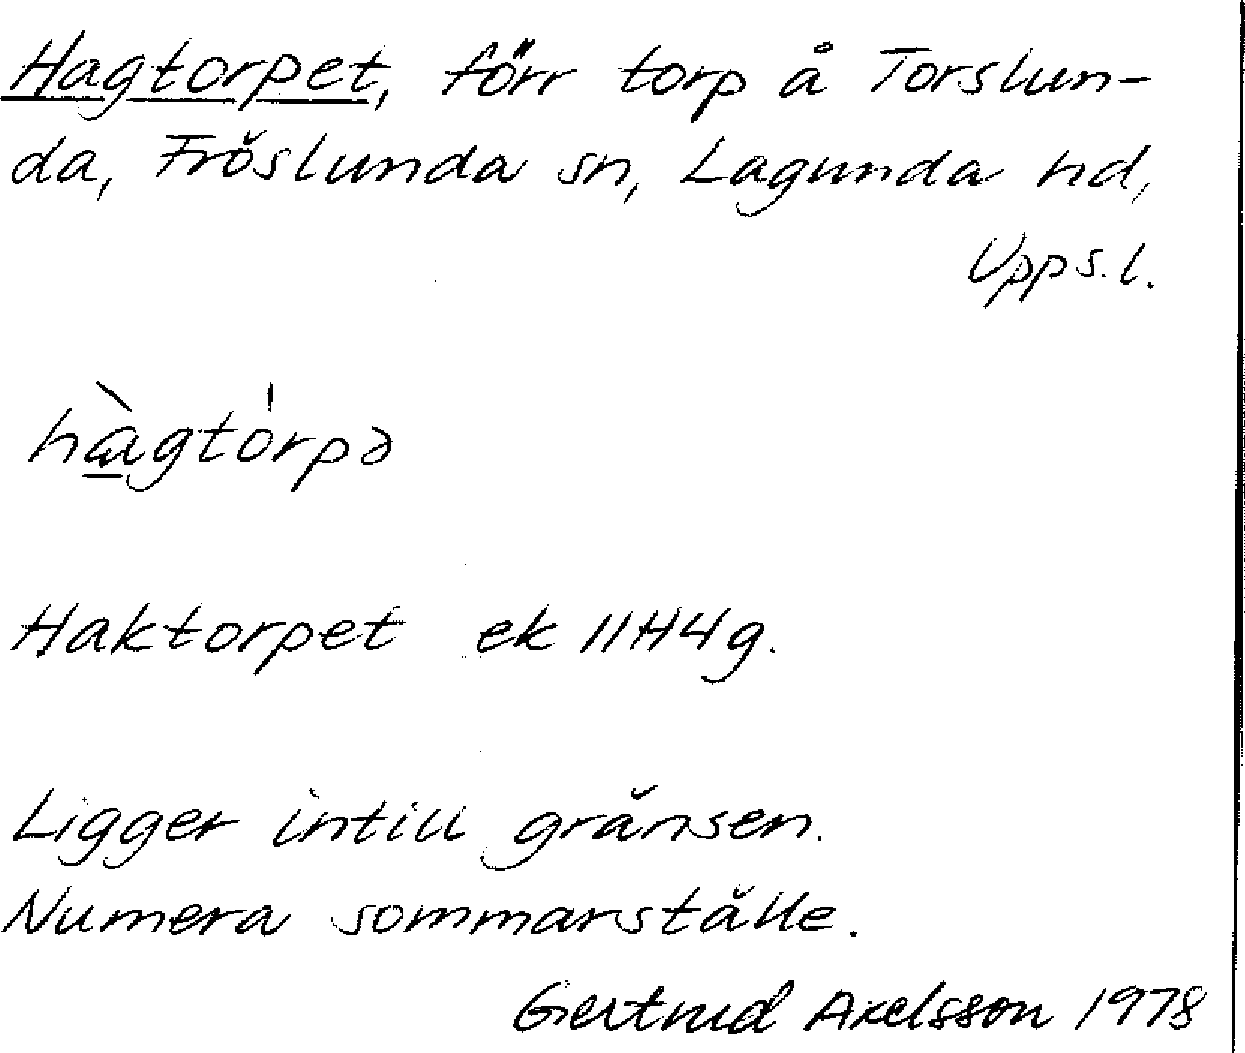 Hagtorpet, förr torp å Torslun-
da, Fröslunda sn, Lagunda hd,
Upps. l.
hàgtórpə
Haktorpet ek 11H4g.
Ligger intill gränsen.
Numera sommarställe.
Gertrud Axelsson 1978